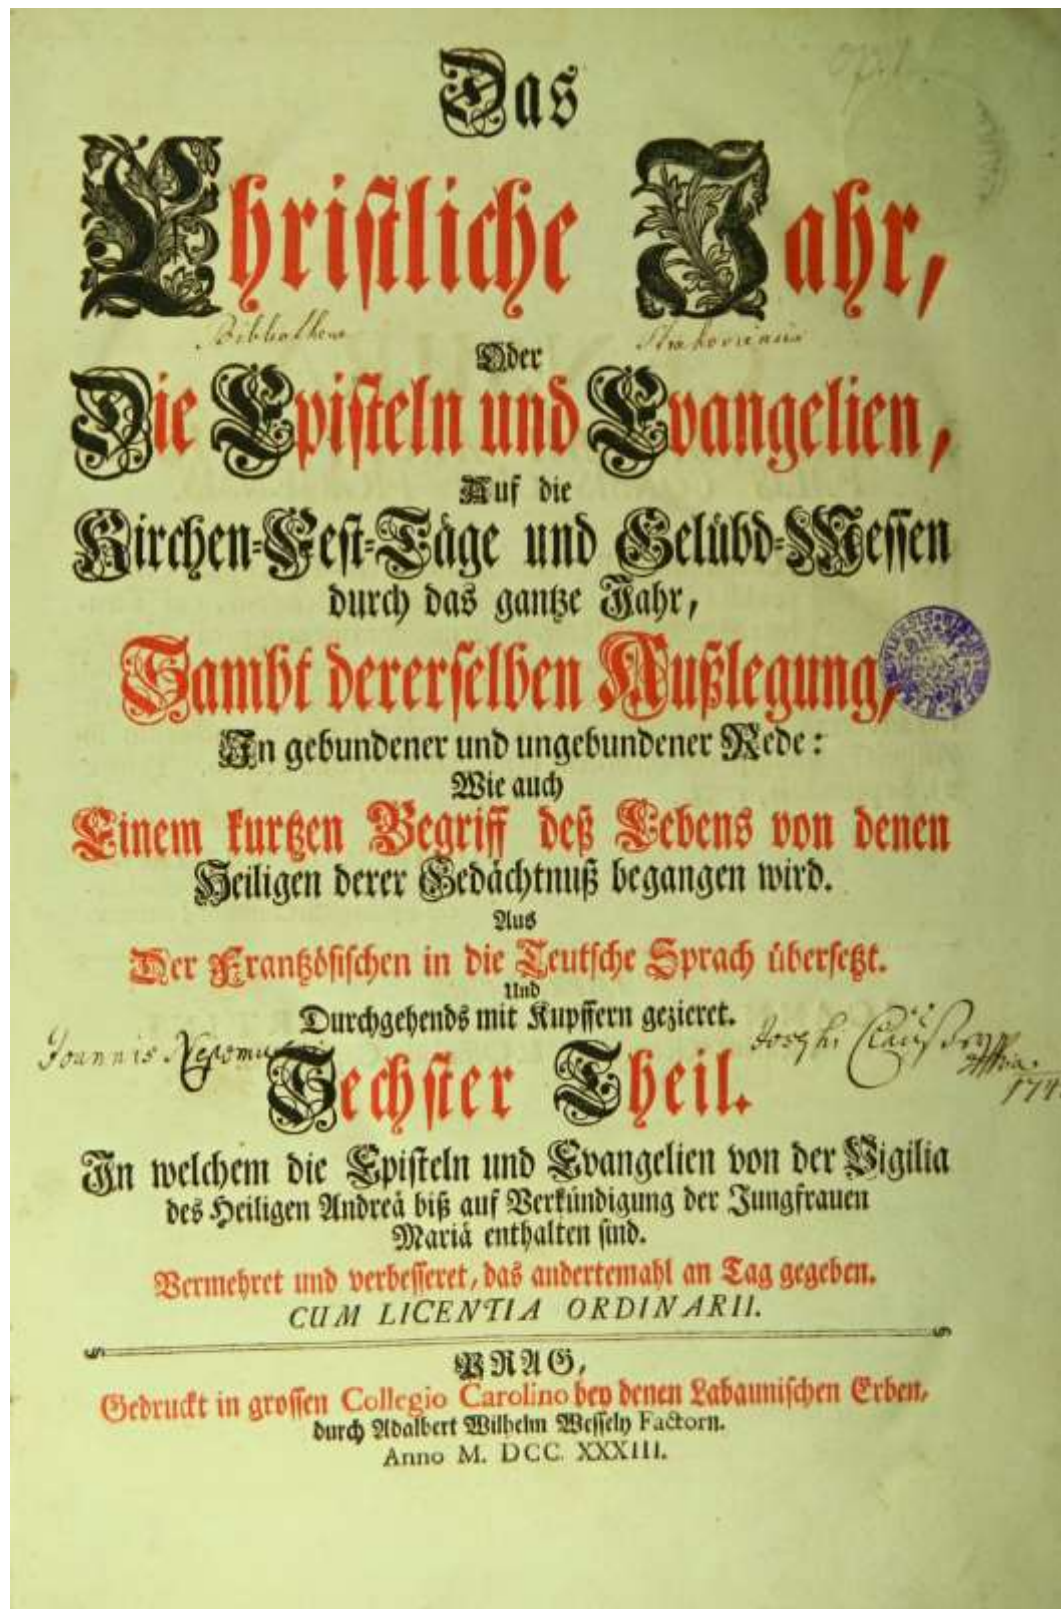 Das
Christliche Jahr,
Bibliothecae Strahoviensis
Oder
Die Episteln und Evangelien,
Auf die
Kirchen-Fest-Täge und Gelübd-Messen
durch das gantze Jahr,
Sambt dererselben Außlegung,
In gebundener und ungebundener Rede:
Wie auch
Einem kurtzen Begriff deß Lebens von denen
Heiligen derer Gedächtnuß begangen wird.
Aus
Der Frantzösischen in die Teutsche Sprach übersetzt.
Und
Durchgehends mit Kupffern gezieret.
Joannis
Sechster Theil.
In welchem die Episteln und Evangelien von der Vigilia
des Heiligen Andreä biß auf Verkündigung der Jungfrauen
Mariä enthalten sind.
Vermehret und verbesseret, das andertemahl an Tag gegeben.
CUM LICENTIA ORDINARII.
PRAG,
Gedruckt in grossen Collegio Carolino bey denen Labaunischen Erben,
durch Adalbert Wilhelm Wessely Factorn.
Anno M. DCC. XXXIII.